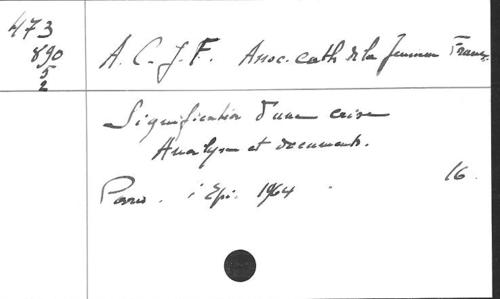 473
890
5
2
A. C. J. F. Assoc. cath. de la Jeunesse Franç.
Signification d'une crise
Analyse et documents.
16.
Paris. Epi. 1964